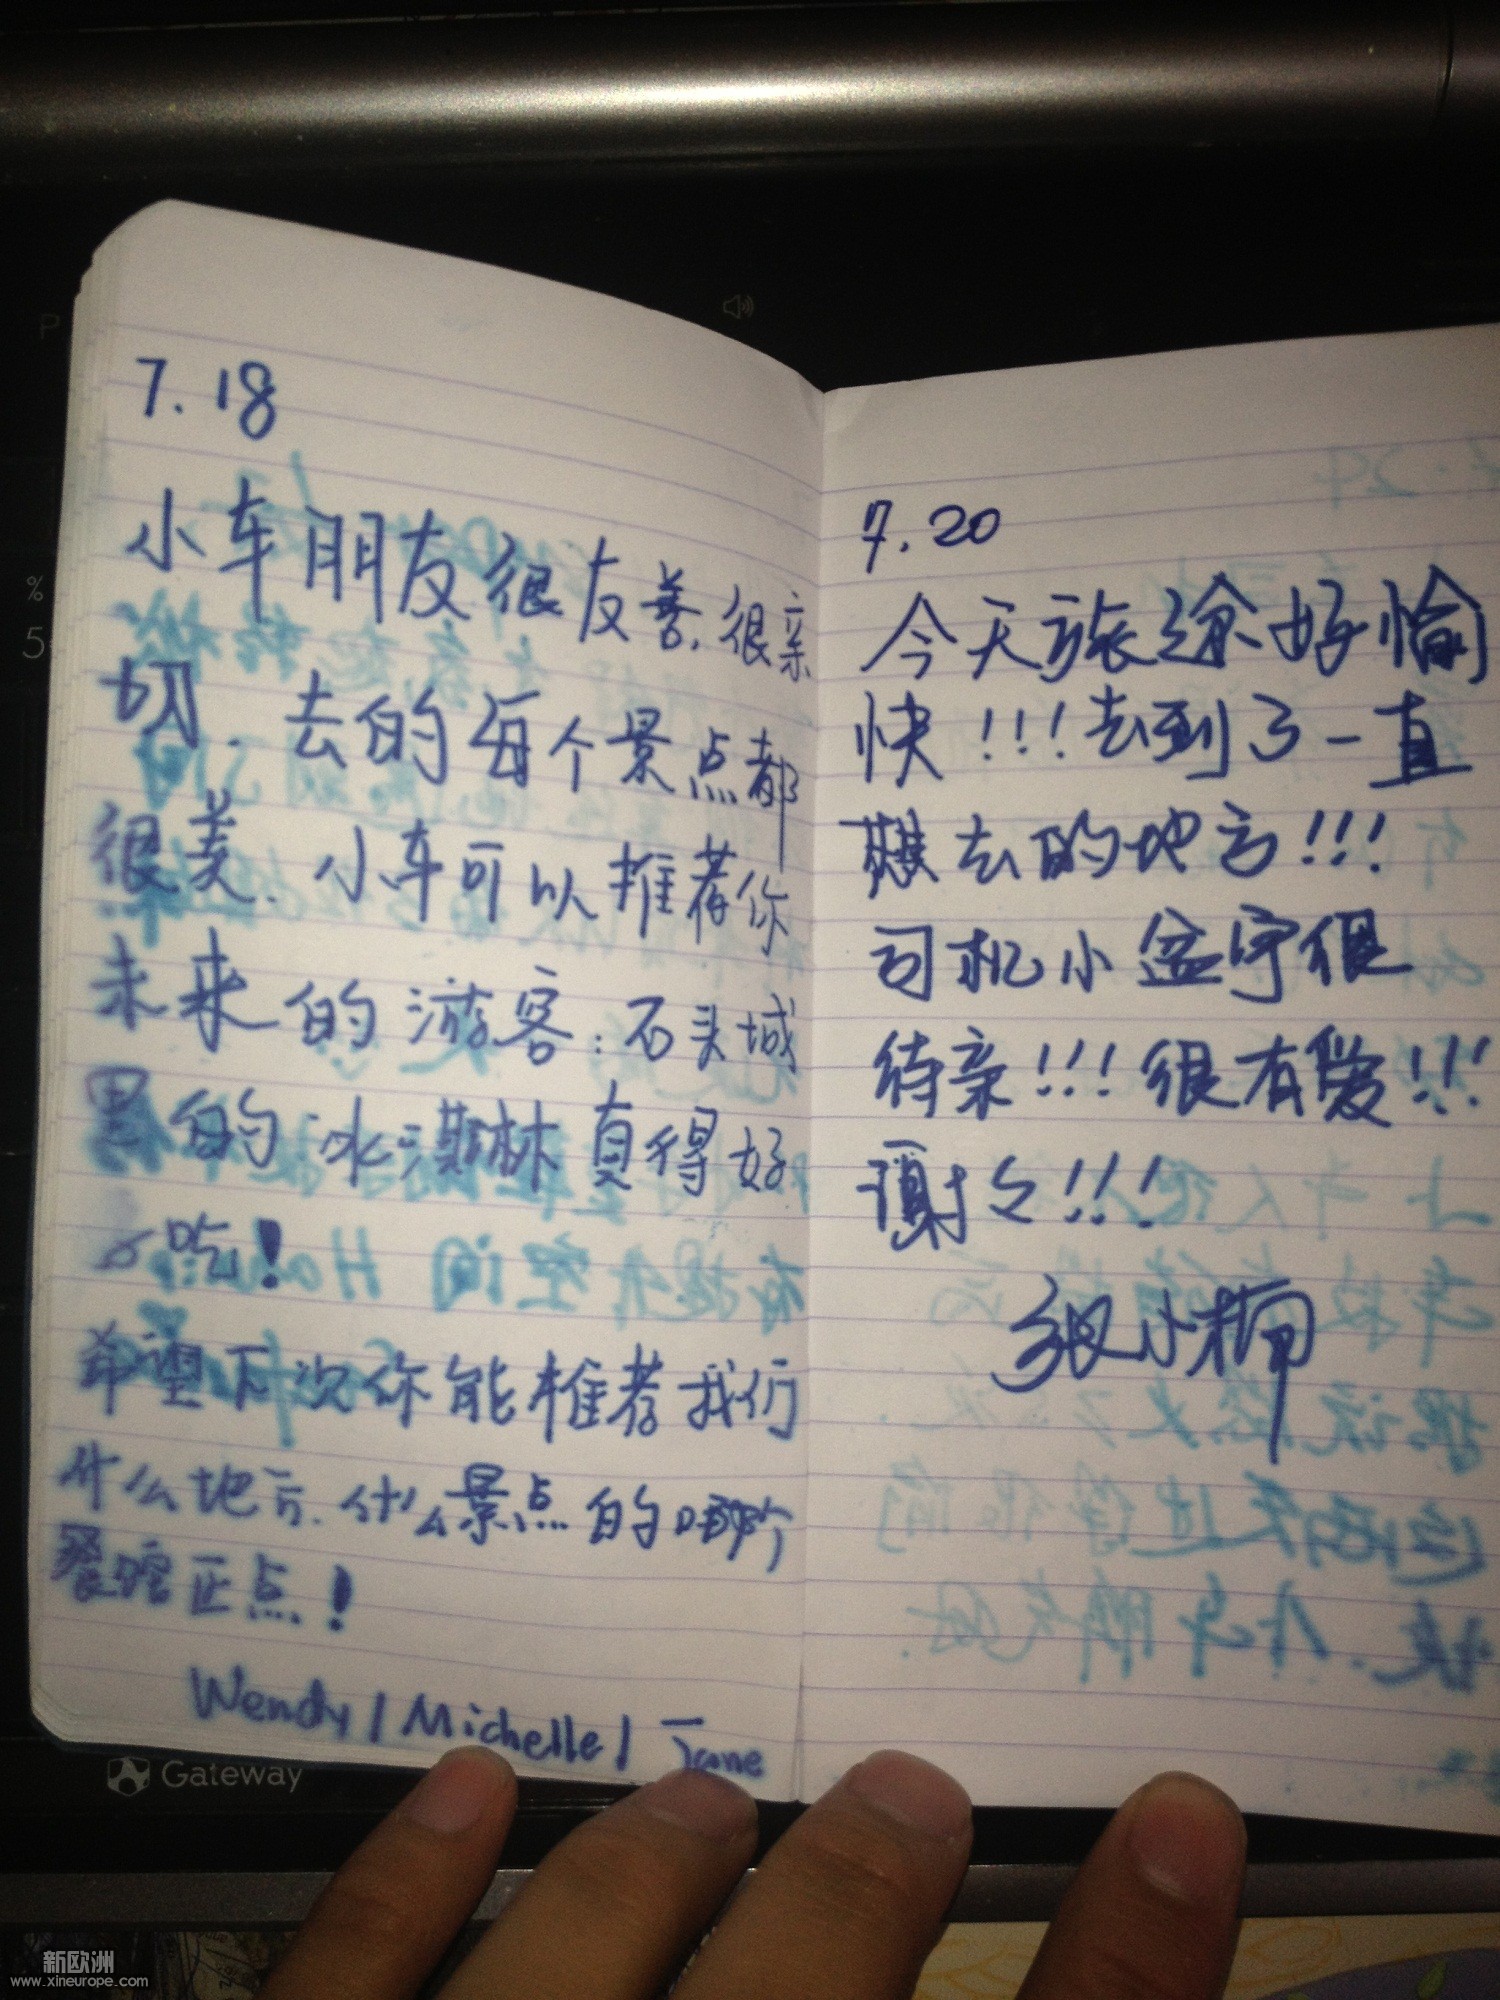 7.18
小车朋友很友善,很亲
切.去的每个景点都
很美.小车可以推荐你
未来的游客:石头城
里的冰淇淋真得好
吃!
希望下次你能推荐我们
什么地方.什么景点的哪个
餐馆正点!
Wendy / Michelle / Jane
7.20
今天旅途好愉
快!!!去到了一直
想去的地方!!!
司机小盆宇很
待亲!!!很有爱!!!
谢谢!!!
张小
Gateway
%
5
P
新欧洲
www.xineurope.com